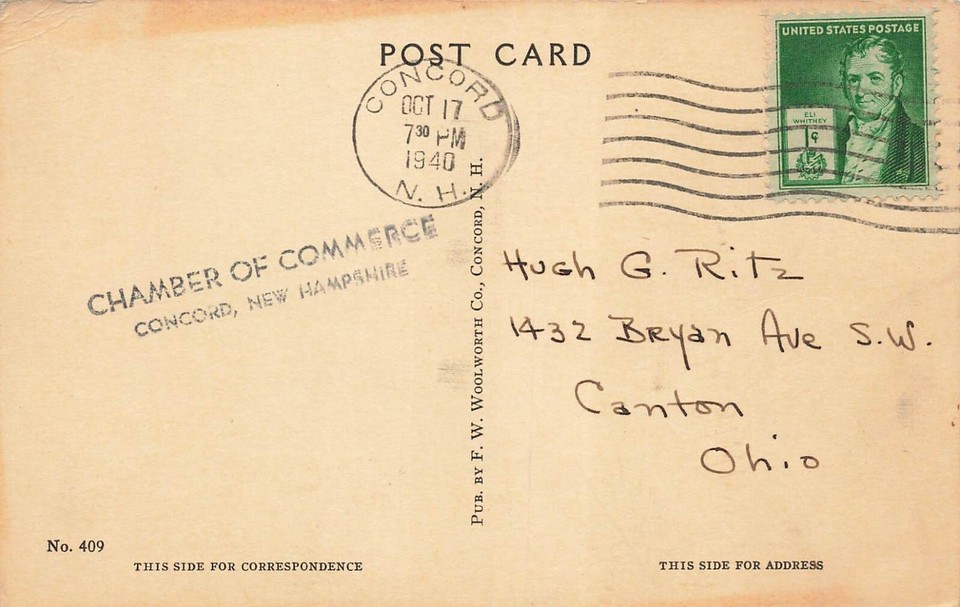 POST CARD
CONCORD
OCT 17
7 30 PM
1940
N. H.
UNITED STATES POSTAGE
ELI
WHITNEY
1¢
CHAMBER OF COMMERCE
CONCORD, NEW HAMPSHIRE
PUB. BY F. W. WOOLWORTH CO., CONCORD, N. H.
Hugh G. Ritz
1432 Bryan Ave S.W.
Canton
Ohio
No. 409
THIS SIDE FOR CORRESPONDENCE
THIS SIDE FOR ADDRESS